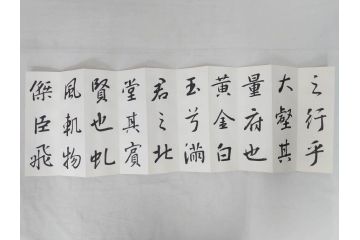 之行乎
大壑其
量府也
黄金白
玉兮滿
君之北
堂其賓
賢也虬
風軌物
傑臣飛